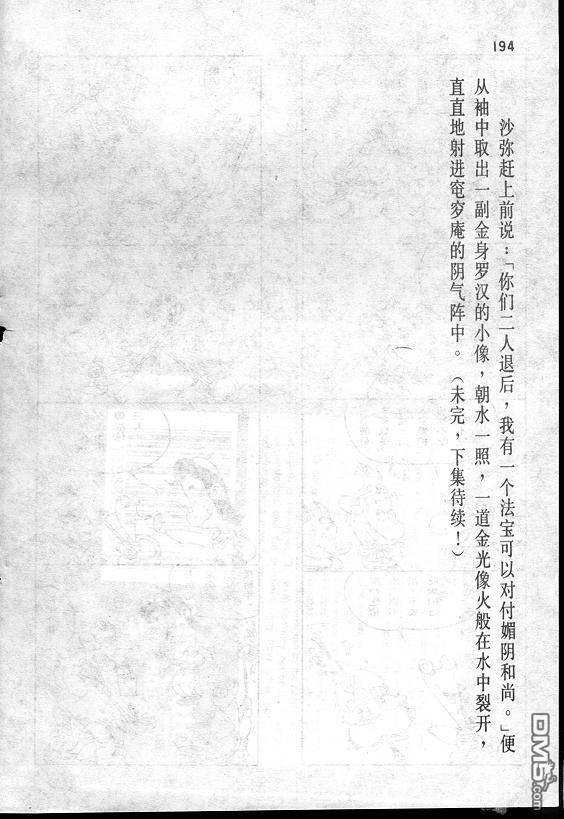 194
沙弥赶上前说：「你们二人退后，我有一个法宝可以对付媚阴和尚。」便
从袖中取出一副金身罗汉的小像，朝水一照，一道金光像火般在水中裂开，
直直地射进窀穸庵的阴气阵中。（未完，下集待续！）
DM5.com